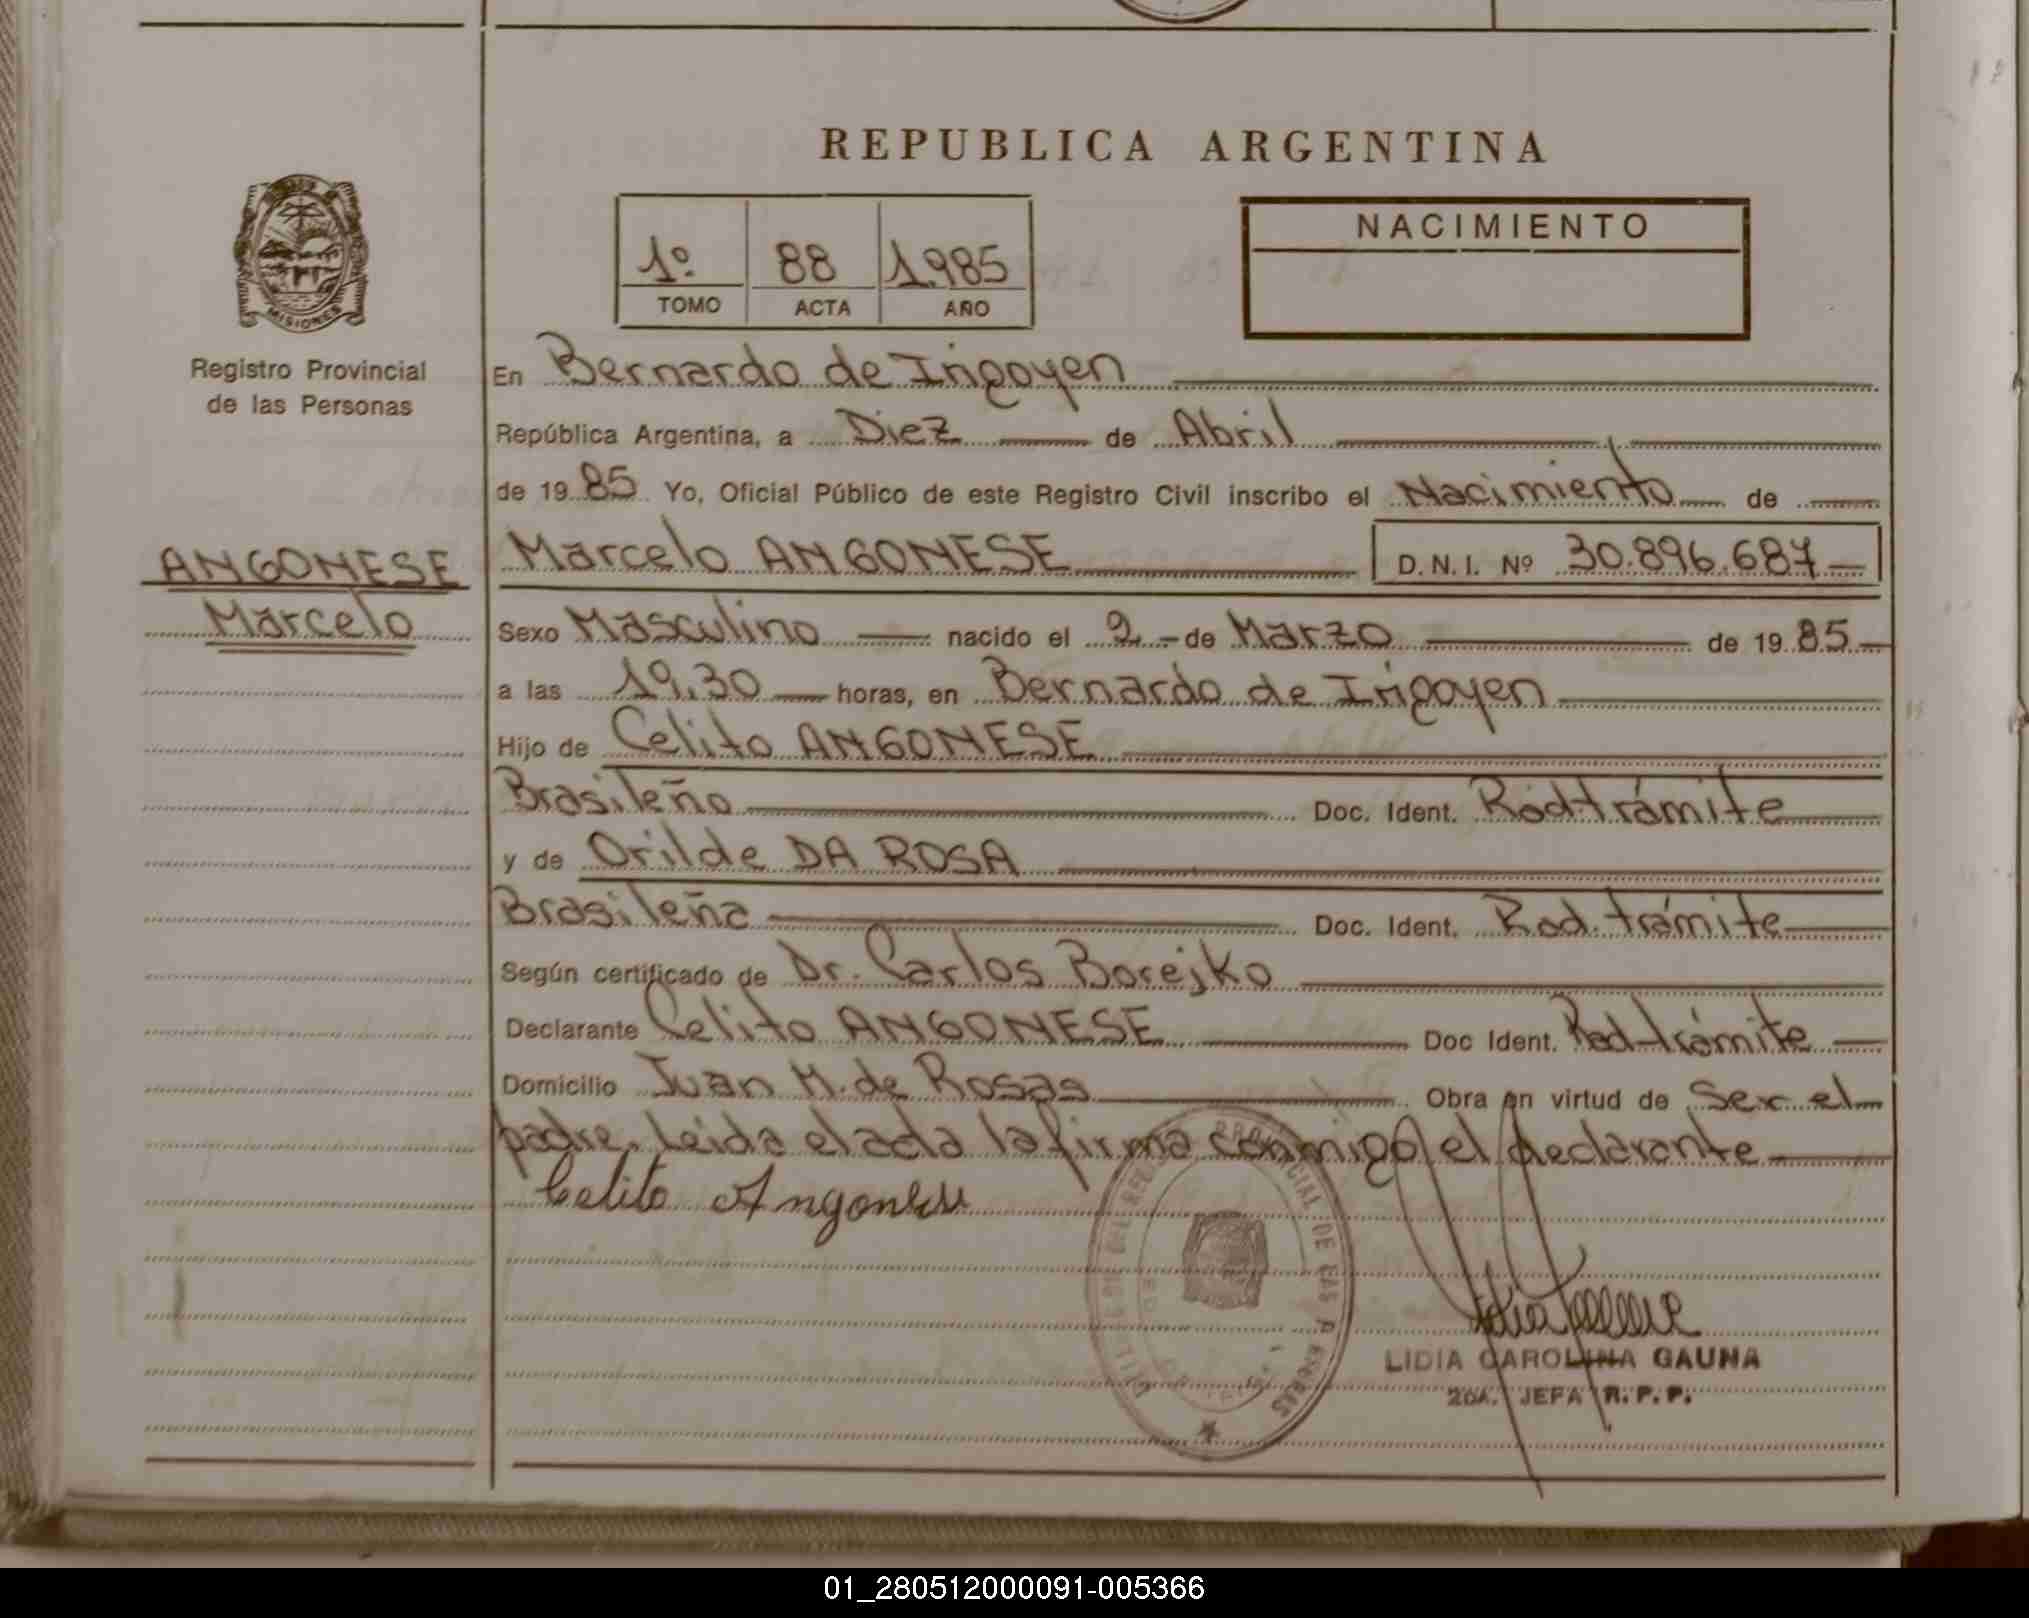 REPUBLICA ARGENTINA
MISIONES
Registro Provincial
de las Personas
1º 88 1.985
TOMO ACTA AÑO
NACIMIENTO
En Bernardo de Irigoyen
República Argentina, a Diez de Abril
de 19 85 Yo, Oficial Público de este Registro Civil inscribo el Nacimiento de
ANGONESE
Marcelo
Marcelo ANGONESE D.N.I. Nº 30.896.687
Sexo Masculino nacido el 2 de Marzo de 19 85
a las 19.30 horas, en Bernardo de Irigoyen
Hijo de Celito ANGONESE
Brasileño Doc. Ident. Rad-trámite
y de Orilde DA ROSA
Brasileña Doc. Ident. Rad. trámite
Según certificado de Dr. Carlos Borejko
Declarante Celito ANGONESE Doc Ident. Rad-trámite
Domicilio Juan M. de Rosas Obra en virtud de Ser el
padre. Leida el acta la firma conmigo el declarante
Celito Angonese
CIVIL DEL REG. PROVINCIAL DE LAS PERSONAS
LIDIA CAROLINA GAUNA
2DA. JEFA R.P.P.
01_280512000091-005366